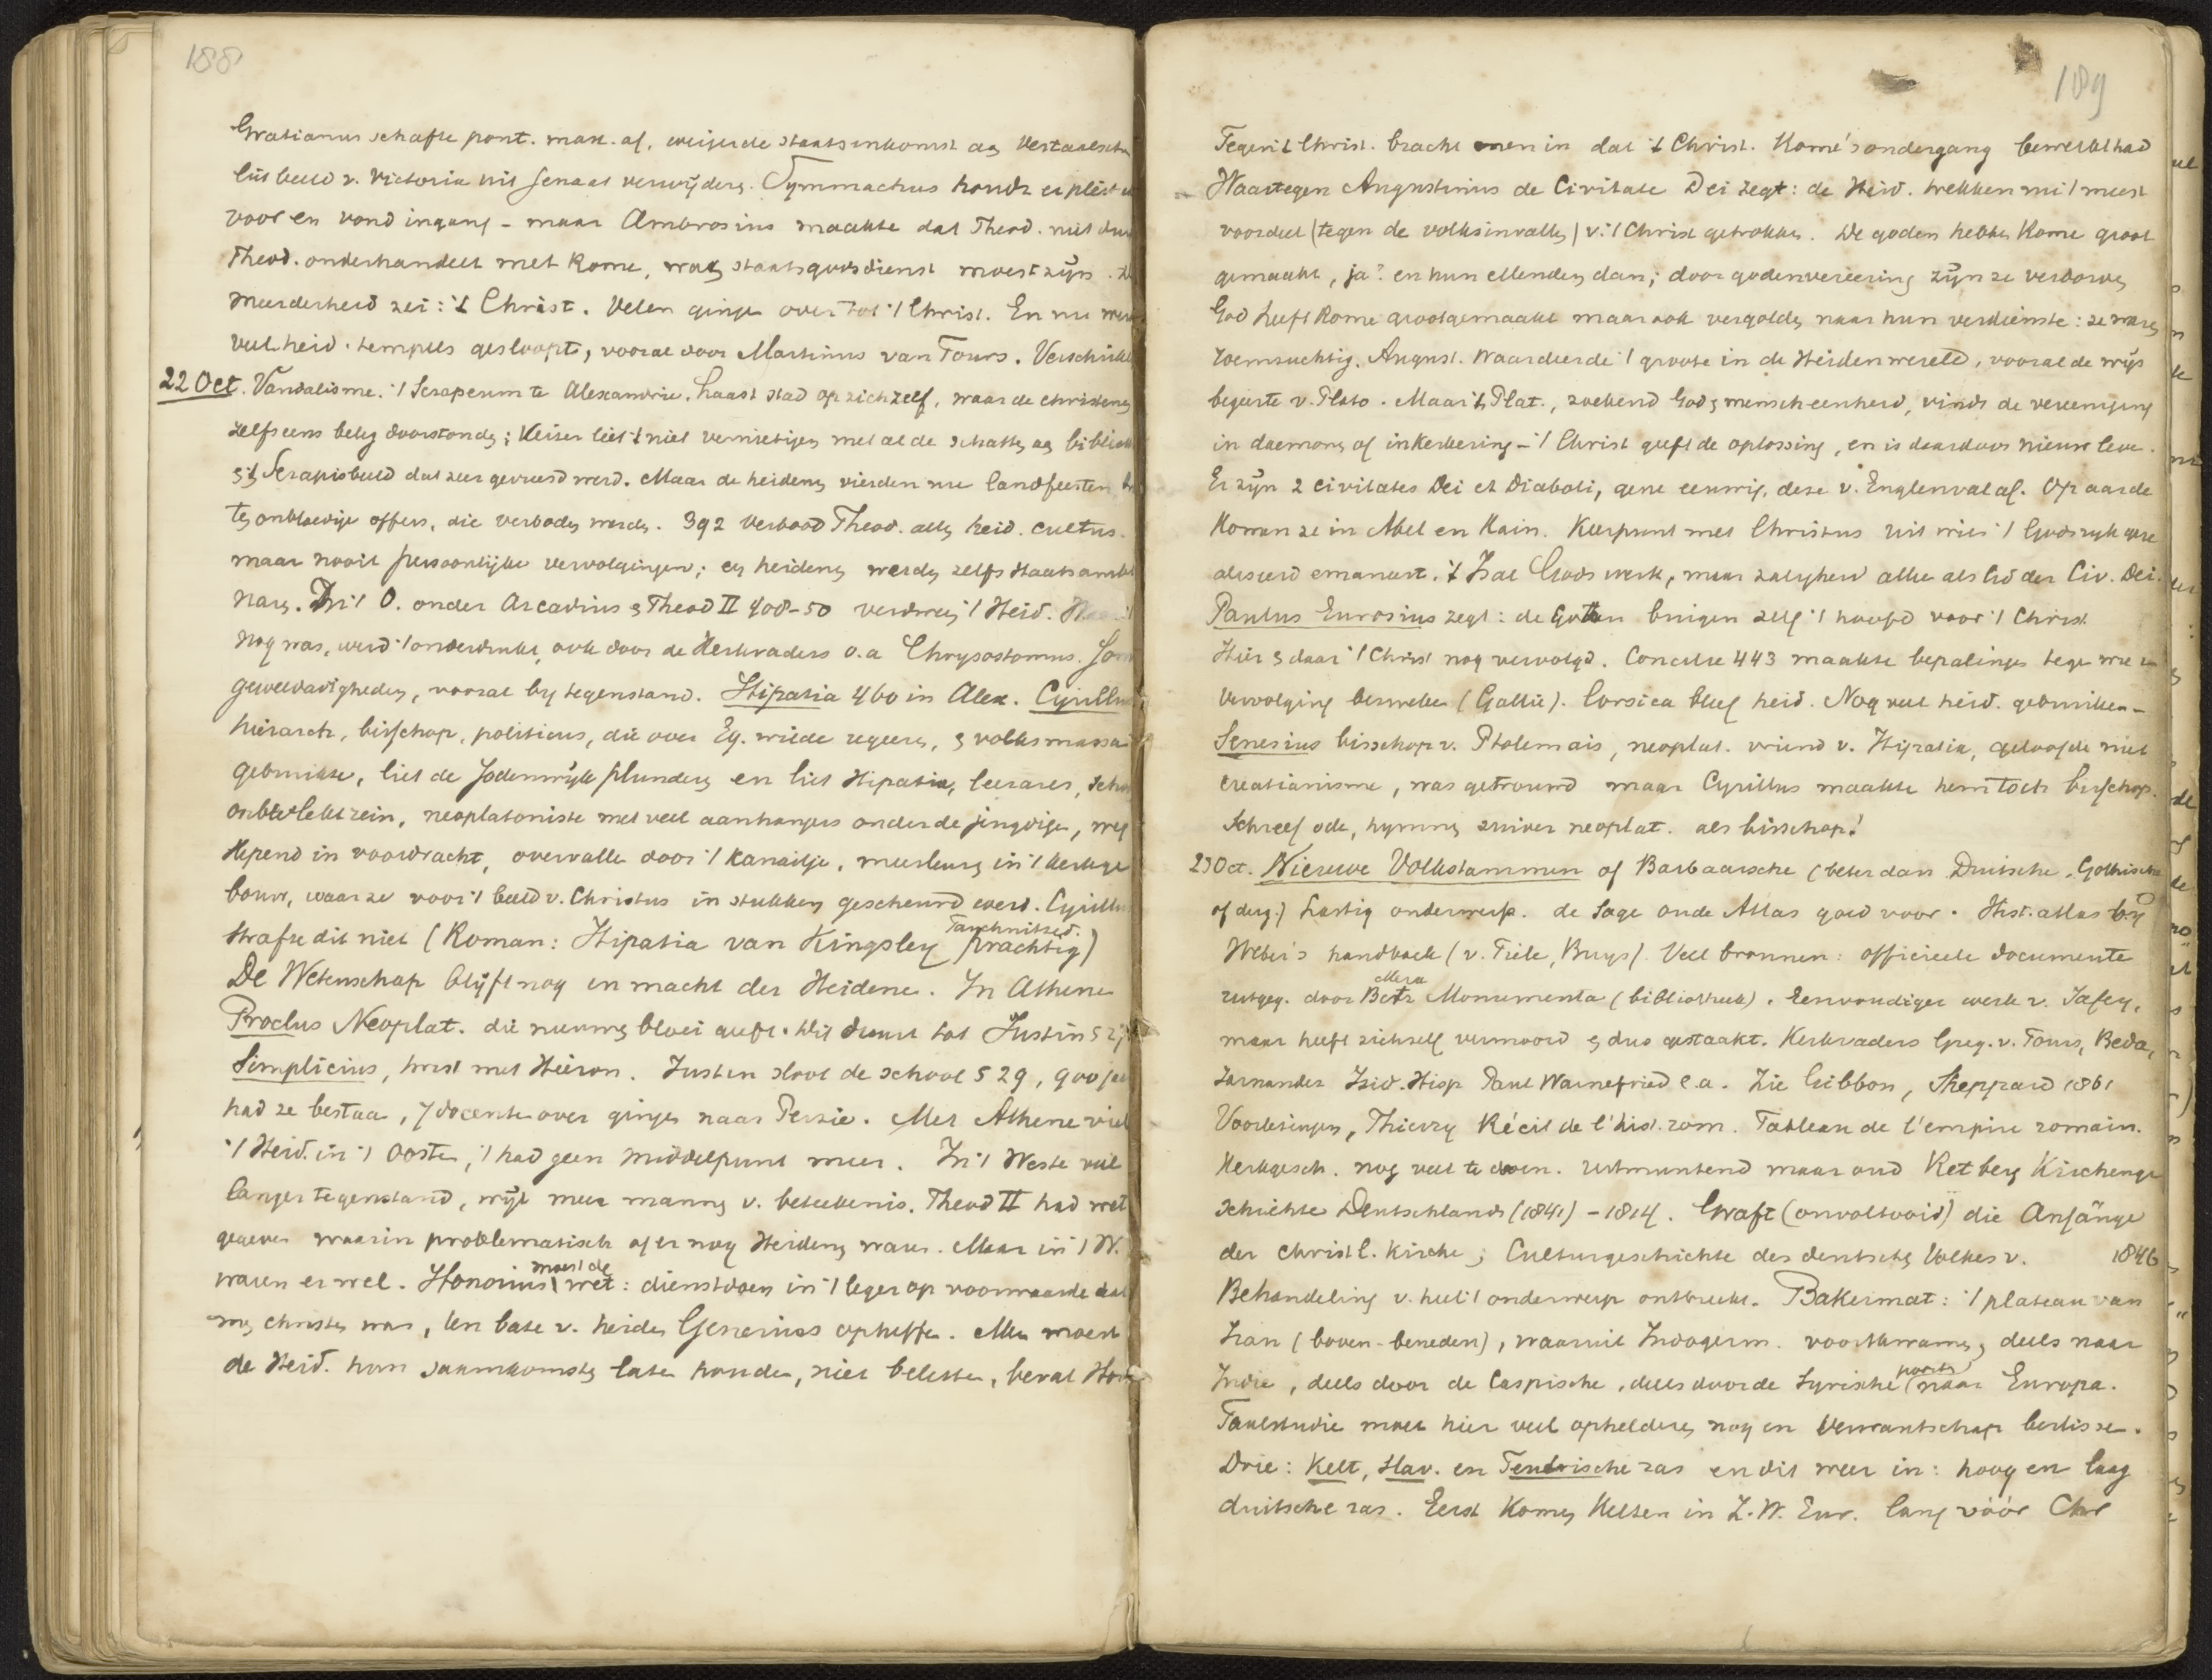 188
Gratianus schafte pont. max. af, weigerde staatsinkomst aan Vestaalsche
liet beeld v. Victoria uit Senaat verwijderen. Symmachus houdt er pleid
voor en vond ingang - maar Ambrosius maakte dat Theod. niet
Theod. onderhandelt met Rome, wat staatsgodsdienst moest zijn.
meerderheid zei: 't Christ. Velen gingen over tot 't Christ. En nu
veel heid. tempels gesloopt, vooral door Martinus van Tours.
22 Oct. Vandalisme. 't Serapeum te Alexandrie, haast stad op zichzelf, waar de christenen
zelfs eens beleg doorstonden; Keizer liet 't niet vernietigen met al de schatten aan
en 't Serapisbeeld dat zeer gevreesd werd. Maar de heidenen vierden nu landfeesten
ten onbloedige offers, die verboden werden. 392 verbood Theod. allen heid. cultus.
maar nooit persoonlijke vervolgingen; en heidenen werden zelfs Staatsambte
naren. In 't O. onder Arcadius en Theod II 408-50 verdween 't Heid.
nog was, werd 't onderdrukt, ook door de Kerkvaders o.a Chrysostomus.
gewelddadigheden, vooral bij tegenstand. Hipatia 460 in Alex. Cyrillus
hierarch, bisschop, politicus, die over Eg. wilde regeren, en volksmassa
gebruikte, liet de Jodenwijk plunderen en liet Hipatia, leerares,
onbevlekt rein, neoplatoniste met veel aanhangers onder de jeugdige,
slepend in voordracht, overvallen door 't kanailje, meesleuren in 't kerkge
bouw, waar ze voor 't beeld v. Christus in stukken gescheurd werd. Cyrillus
strafte dit niet (Roman: Hipatia van Kingsley Tauchnitzed. prachtig)
De Wetenschap blijft nog in macht der Heidenen. In Athene
Proclus Neoplat. die nieuwen bloei geeft. Dit duurt tot Justin
Simplicius, twist met Hieron. Justin sloot de school 529, 900 jaar
had ze bestaan, 7 docenten over gingen naar Perzie. Met Athene viel
't Heid. in 't Oosten, 't had geen middelpunt meer. In 't Weste veel
langer tegenstand, wijl meer mannen v. beteekenis. Theod II had wet
gegeven waarin problematisch of er nog Heidenen waren. Maar in 't W.
waren er wel. Honorius moest de wet: dienstdoen in 't leger op voorwaarde dat
men christen was, ten bate v. heiden Generius opheffen. Men moest
de Heid. hun saamkomsten laten houden, niet beletten, beval
189
Tegen 't Christ. bracht men in dat 't Christ. Rome's ondergang bewerkt had
Waartegen Augustinus de Civitate Dei zegt: de Heid. trekken nu 't meest
voordeel (tegen de volksinvallen) v. 't Christ getrokken. De goden hebben Rome groot
gemaakt, ja? en hun ellenden dan; door godenvereering zijn ze verdorven
God heeft Rome grootgemaakt maar ook vergolden naar hun verdienste: ze waren
roemzuchtig. August. waardeerde 't groote in de Heidenwereld, vooral de wijs
begeerte v. Plato. Maar 't Plat., zoekend God en menscheenheid, vindt de vereeniging
in daemonen of inkerkering - 't Christ geeft de oplossing, en is daardoor nieuw leven.
Er zijn 2 civitates Dei et Diaboli, gene eeuwig, deze v. Englenval af. Op aarde
komen ze in Abel en Kain. Keerpunt met Christus uit wien 't Godsrijk
emaneert. 't Is al Gods werk, maar zaligheid alleen als lid der Civ. Dei.
Paulus Eurosius zegt: de Gothen buigen zelf 't hoofd voor 't Christ
Hier en daar 't Christ nog vervolgd. Concilie 443 maakte bepalingen tegen wie
vervolging bewerken (Gallie). Corsica bleef heid. Nog veel heid. gebruiken -
Senesius bisschop v. Ptolemais, neoplat. vriend v. Hipatia, geloofde niet
creatianisme, was getrouwd maar Cyrillus maakte hem toch bisschop.
Schreef ode, hymnen zuiver neoplat. als bisschop!
23 Oct. Nieuwe Volkstammen of Barbaarsche (beter dan Duitsche, Gothische
of derg.) Lastig onderwerp. de Sage oude Atlas goed voor. Hist. atlas bij
Weber's handboek (v. Tiele, Buys). Veel bronnen: officieele documente
uitgeg. door Pertz Monumenta (bibliotheek). Eenvoudiger werk v. Jaffey,
maar heeft zichzelf vermoord en dus gestaakt. Kerkvaders Greg. v. Tours, Beda,
Jornandes Isid. Hisp Paul Warnefried e.a. Zie Gibbon, Sheppard 1861
Voorlezingen, Thierry Récit de l'hist. rom. Tableau de l'empire romain.
Kerkgesch. nog veel te doen. Uitmuntend maar oud Retberg Kirchenge
schichte Deutschlands (1841) - 1814. Graft (onvoltooid) die Anfänge
der christl. Kirche; Culturgeschichte des deutschen Volkes v. 1846
Behandeling v. heel 't onderwerp ontbreekt. Bakermat: 't plateau van
Iran (boven-beneden), waaruit Indogerm. voortkwamen, deels naar
Indie, deels door de Caspische, deels door de Syrische poort naar Europa.
Taalstudie moet hier veel ophelderen nog en verwantschap beslissen.
Drie: Kelt, Slav. en Teutonische ras en dit weer in: hoog en laag
duitsche ras. Eerst komen Kelten in Z.W. Eur. lang vóór Chr